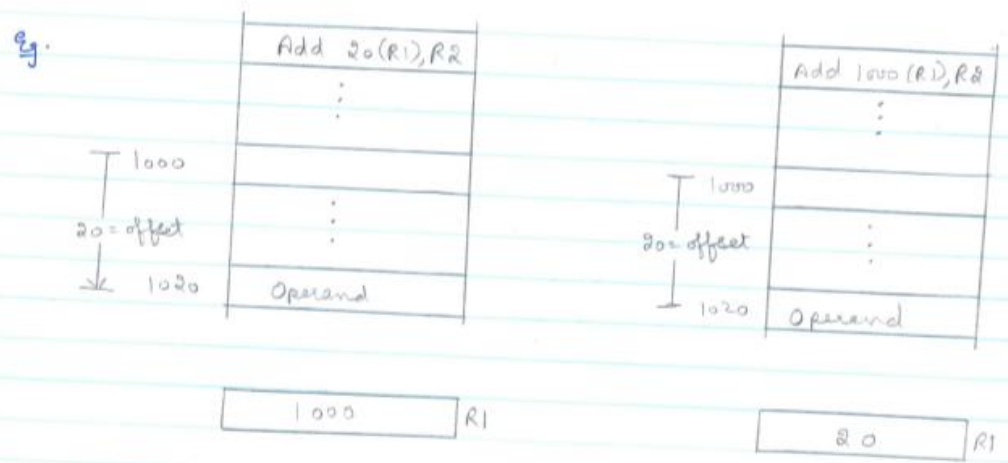 Eg.
Add 20(R1), R2
1000
20 = offset
1020
Operand
1000
R1
Add 1000(R1), R2
1000
20 = offset
1020
Operand
20
R1